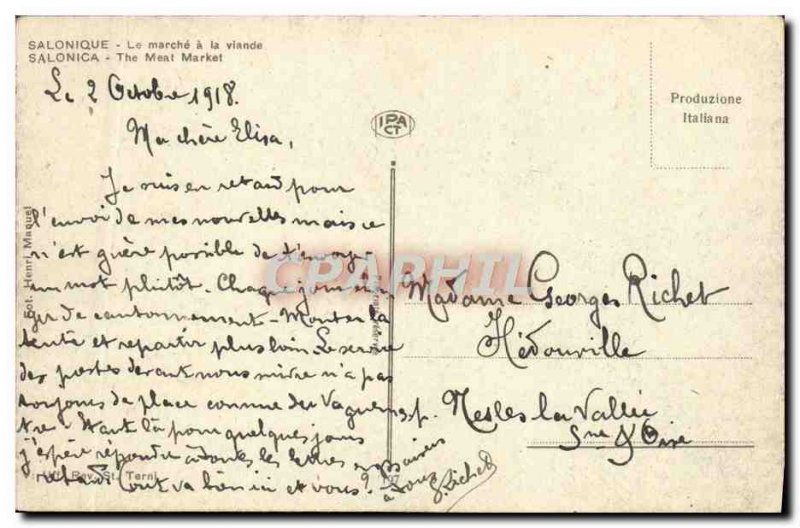 SALONIQUE - Le marché à la viande
SALONICA - The Meat Market
Le 2 Octobre 1918.
Ma chère Elisa,
Je suis en retard pour
l'envoi de mes nouvelles mais ce
n'est guère possible de t'envoyer
un mot plutôt. Chaque jour chan
ger de cantonnement - Monter la
tente et repartir plus loin. Le service
des postes devant nous suivre n'a pas
toujours de place comme du Vaguemes
tre. Etant là pour quelques jours
j'espère répondre à toutes les lettres
Tout va bien ici et vous?
Baisers
à tous
G Richet
Fot. Henri Manuel
Uff. Rev. St. Terni
197
IPA CT
Produzione
Italiana
CPARHIL
Madame Georges Richet
Hédouville
p. Nesles la Vallée
Sne & Oise